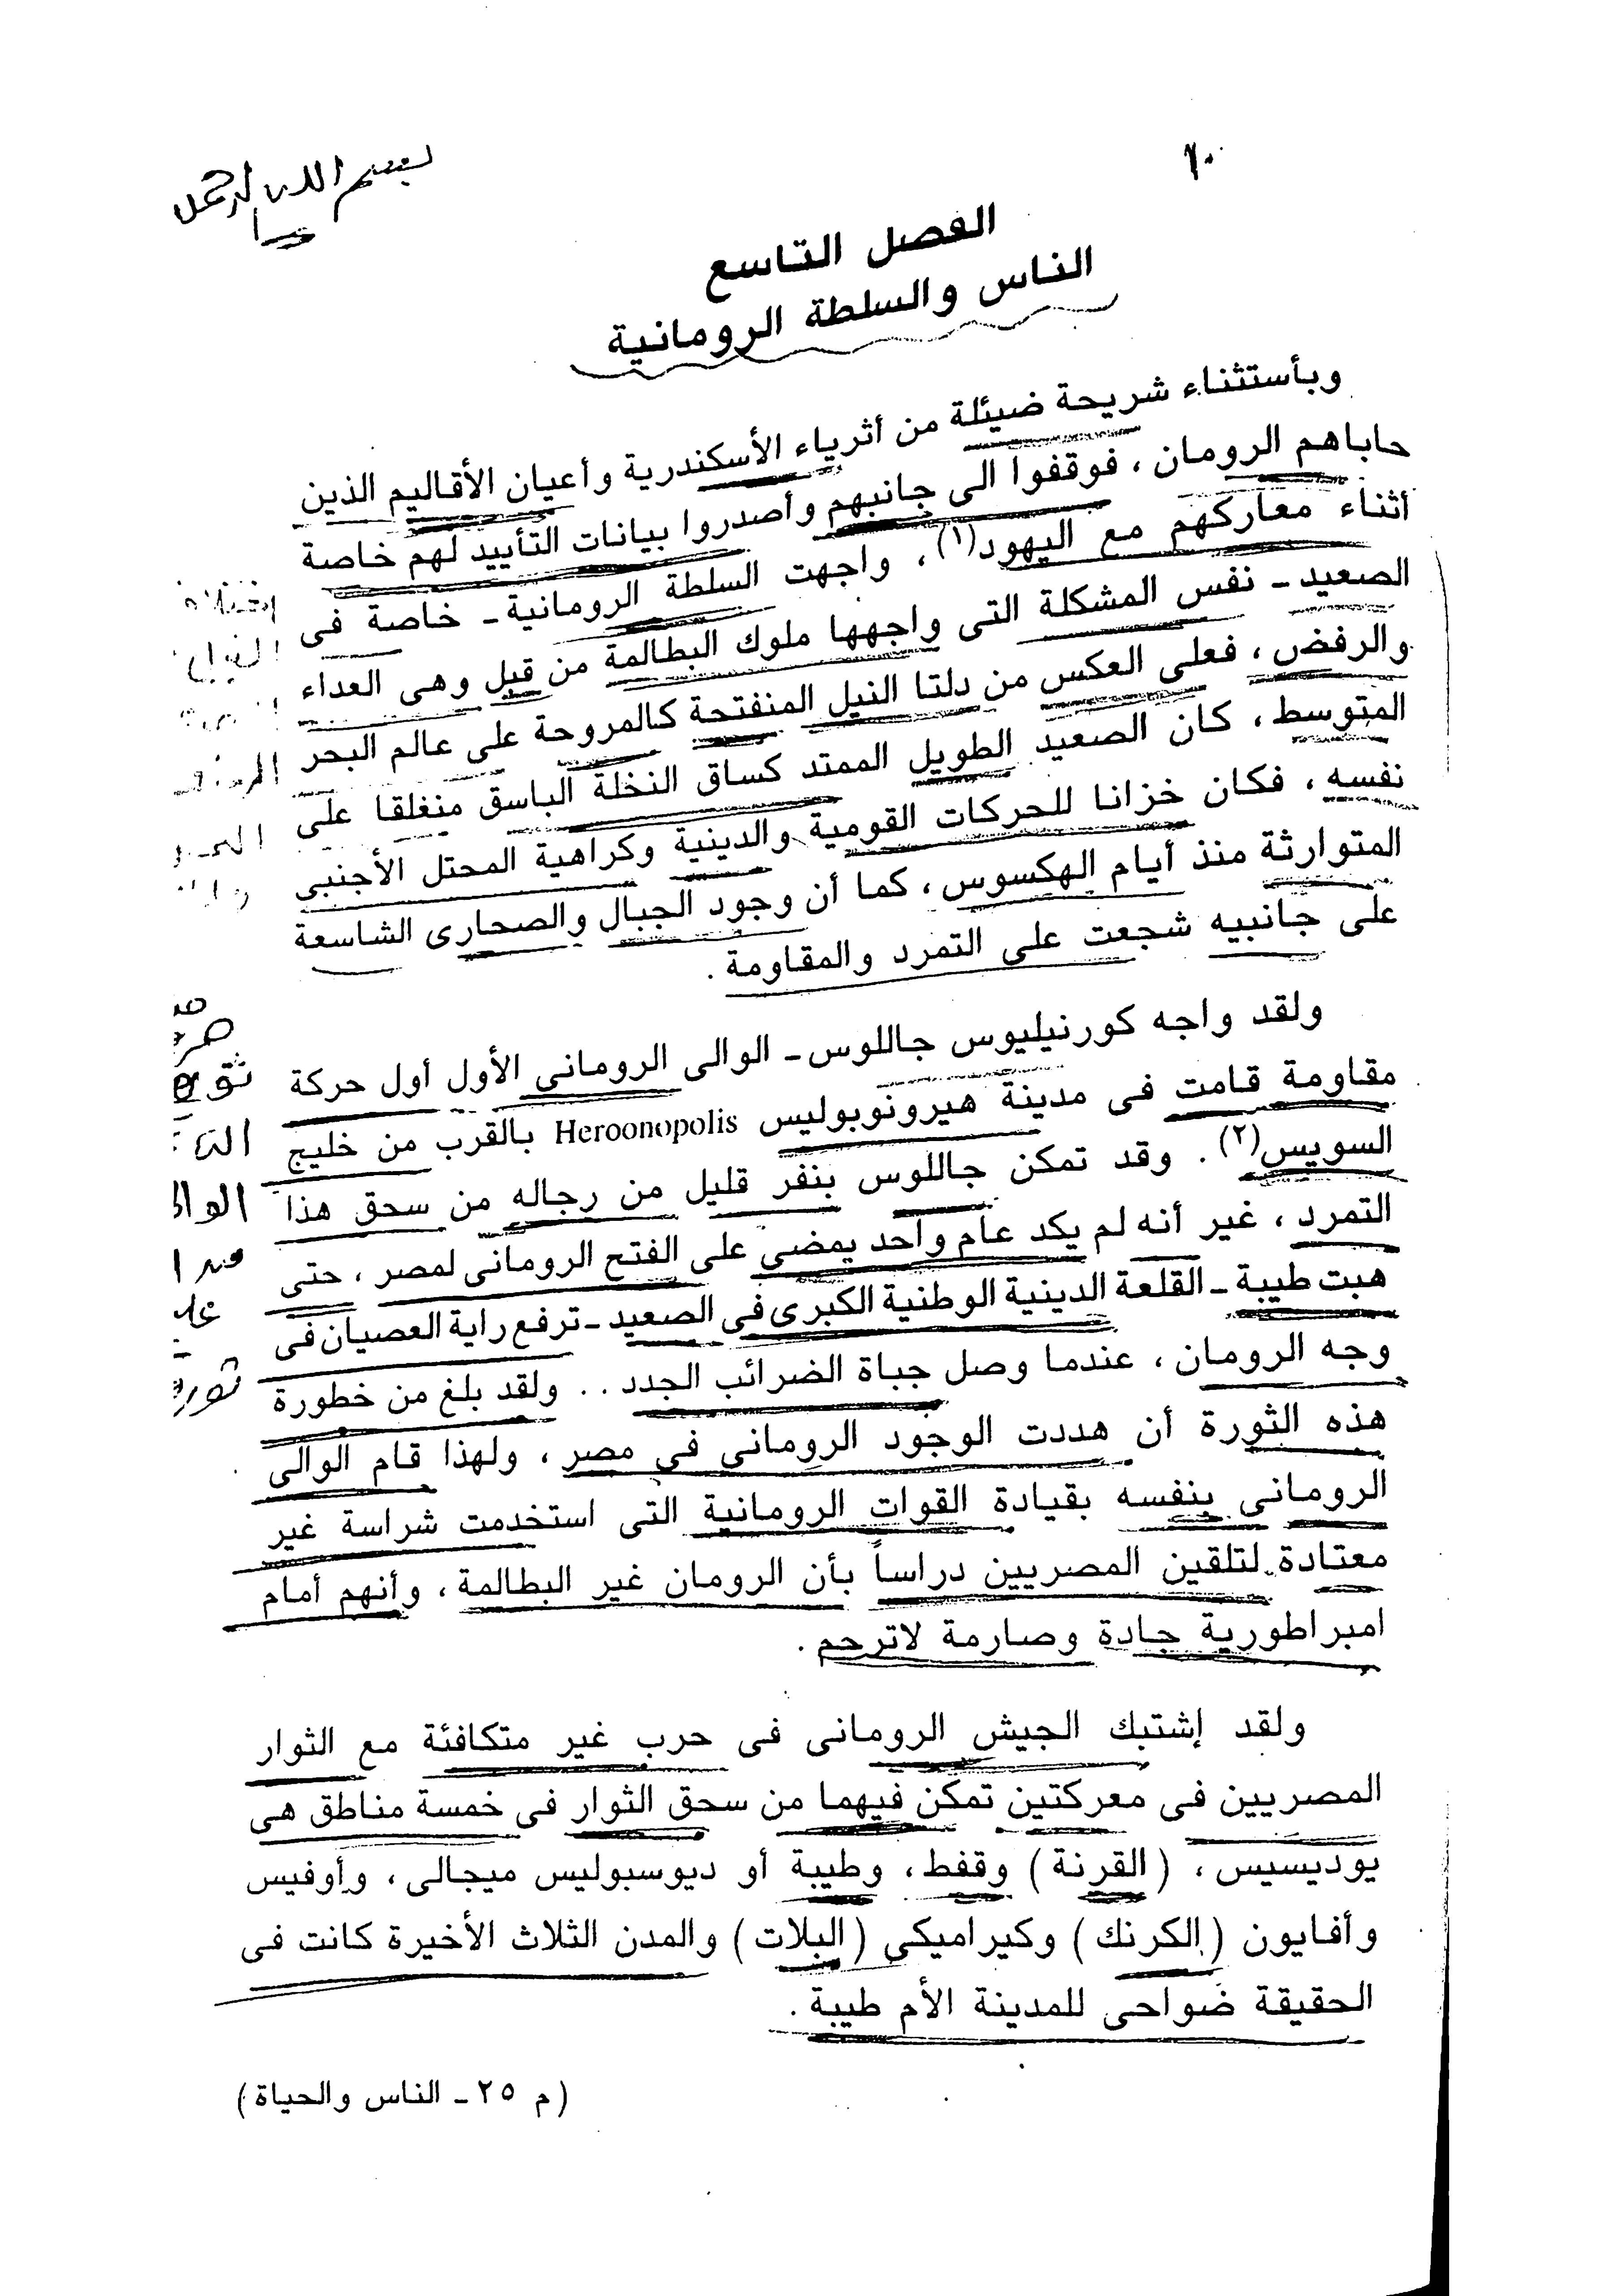 بسم الله الرحمن
الفصل التاسع
الناس والسلطة الرومانية
وبأستثناء شريحة ضيئلة من أثرياء الأسكندرية وأعيان الأقاليم الذين
حاباهم الرومان ، فوقفوا الى جانبهم وأصدروا بيانات التأييد لهم خاصة
أثناء معاركهم مع اليهود(١) ، واجهت السلطة الرومانية ـ خاصة فى
الصعيد ـ نفس المشكلة التى واجهها ملوك البطالمة من قبل وهى العداء
والرفض ، فعلى العكس من دلتا النيل المنفتحة كالمروحة على عالم البحر
المتوسط ، كان الصعيد الطويل الممتد كساق النخلة الباسق منغلقا على
نفسه ، فكان خزانا للحركات القومية والدينية وكراهية المحتل الأجنبى
المتوارثة منذ أيام الهكسوس ، كما أن وجود الجبال والصحارى الشاسعة
على جانبيه شجعت على التمرد والمقاومة .
ولقد واجه كورنيليوس جاللوس ـ الوالى الرومانى الأول أول حركة
مقاومة قامت فى مدينة هيرونوبوليس Heroonopolis بالقرب من خليج
السويس(٢) . وقد تمكن جاللوس بنفر قليل من رجاله من سحق هذا
التمرد ، غير أنه لم يكد عام واحد يمضى على الفتح الرومانى لمصر ، حتى
هبت طيبة ـ القلعة الدينية الوطنية الكبرى فى الصعيد ـ ترفع راية العصيان فى
وجه الرومان ، عندما وصل جباة الضرائب الجدد . . ولقد بلغ من خطورة
هذه الثورة أن هددت الوجود الرومانى فى مصر ، ولهذا قام الوالى
الرومانى بنفسه بقيادة القوات الرومانية التى استخدمت شراسة غير
معتادة لتلقين المصريين دراساً بأن الرومان غير البطالمة ، وأنهم أمام
امبراطورية جادة وصارمة لاترحم .
ولقد إشتبك الجيش الرومانى فى حرب غير متكافئة مع الثوار
المصريين فى معركتين تمكن فيهما من سحق الثوار فى خمسة مناطق هى
يوديسيس ، (القرنة) وقفط ، وطيبة أو ديوسبوليس ميجالى ، وأوفيس
وأفايون (الكرنك) وكيراميكى (البلات) والمدن الثلاث الأخيرة كانت فى
الحقيقة ضواحى للمدينة الأم طيبة .
(م ٢٥ ـ الناس والحياة)